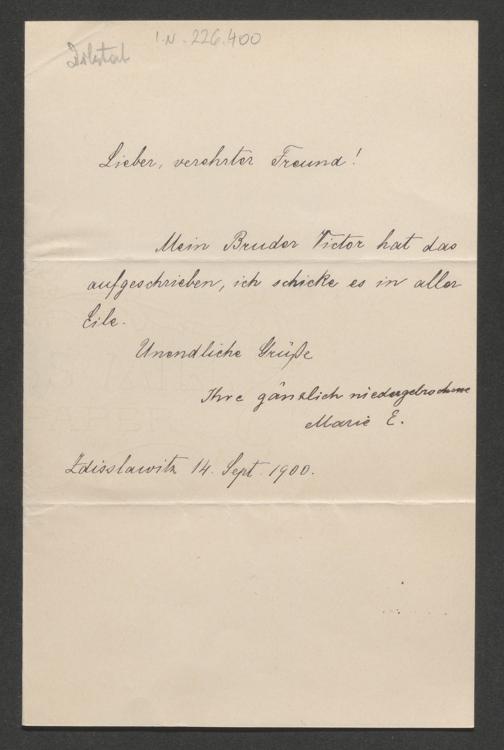 I.N. 226.400
Lieber, verehrter Freund!
Mein Bruder Victor hat das
aufgeschrieben, ich schicke es in aller
Eile.
Unendliche Grüße
Ihre gänzlich niedergebrochene
Marie E.
Zdisslawitz 14. Sept. 1900.